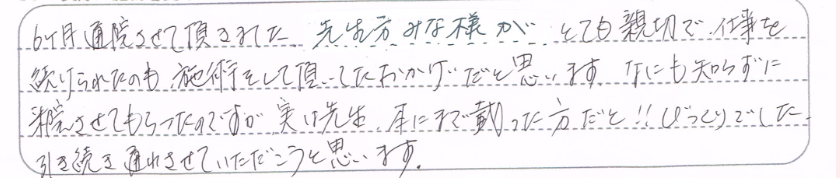 6ヶ月通院させて頂きました。先生方みな様がとても親切で、仕事を
続けられたのも施術をして頂いてたおかげだと思います。なにも知らずに
来院させてもらったのですが実は先生、本にまで載った方だと!!びっくりでした。
引き続き通わさせていただこうと思います。